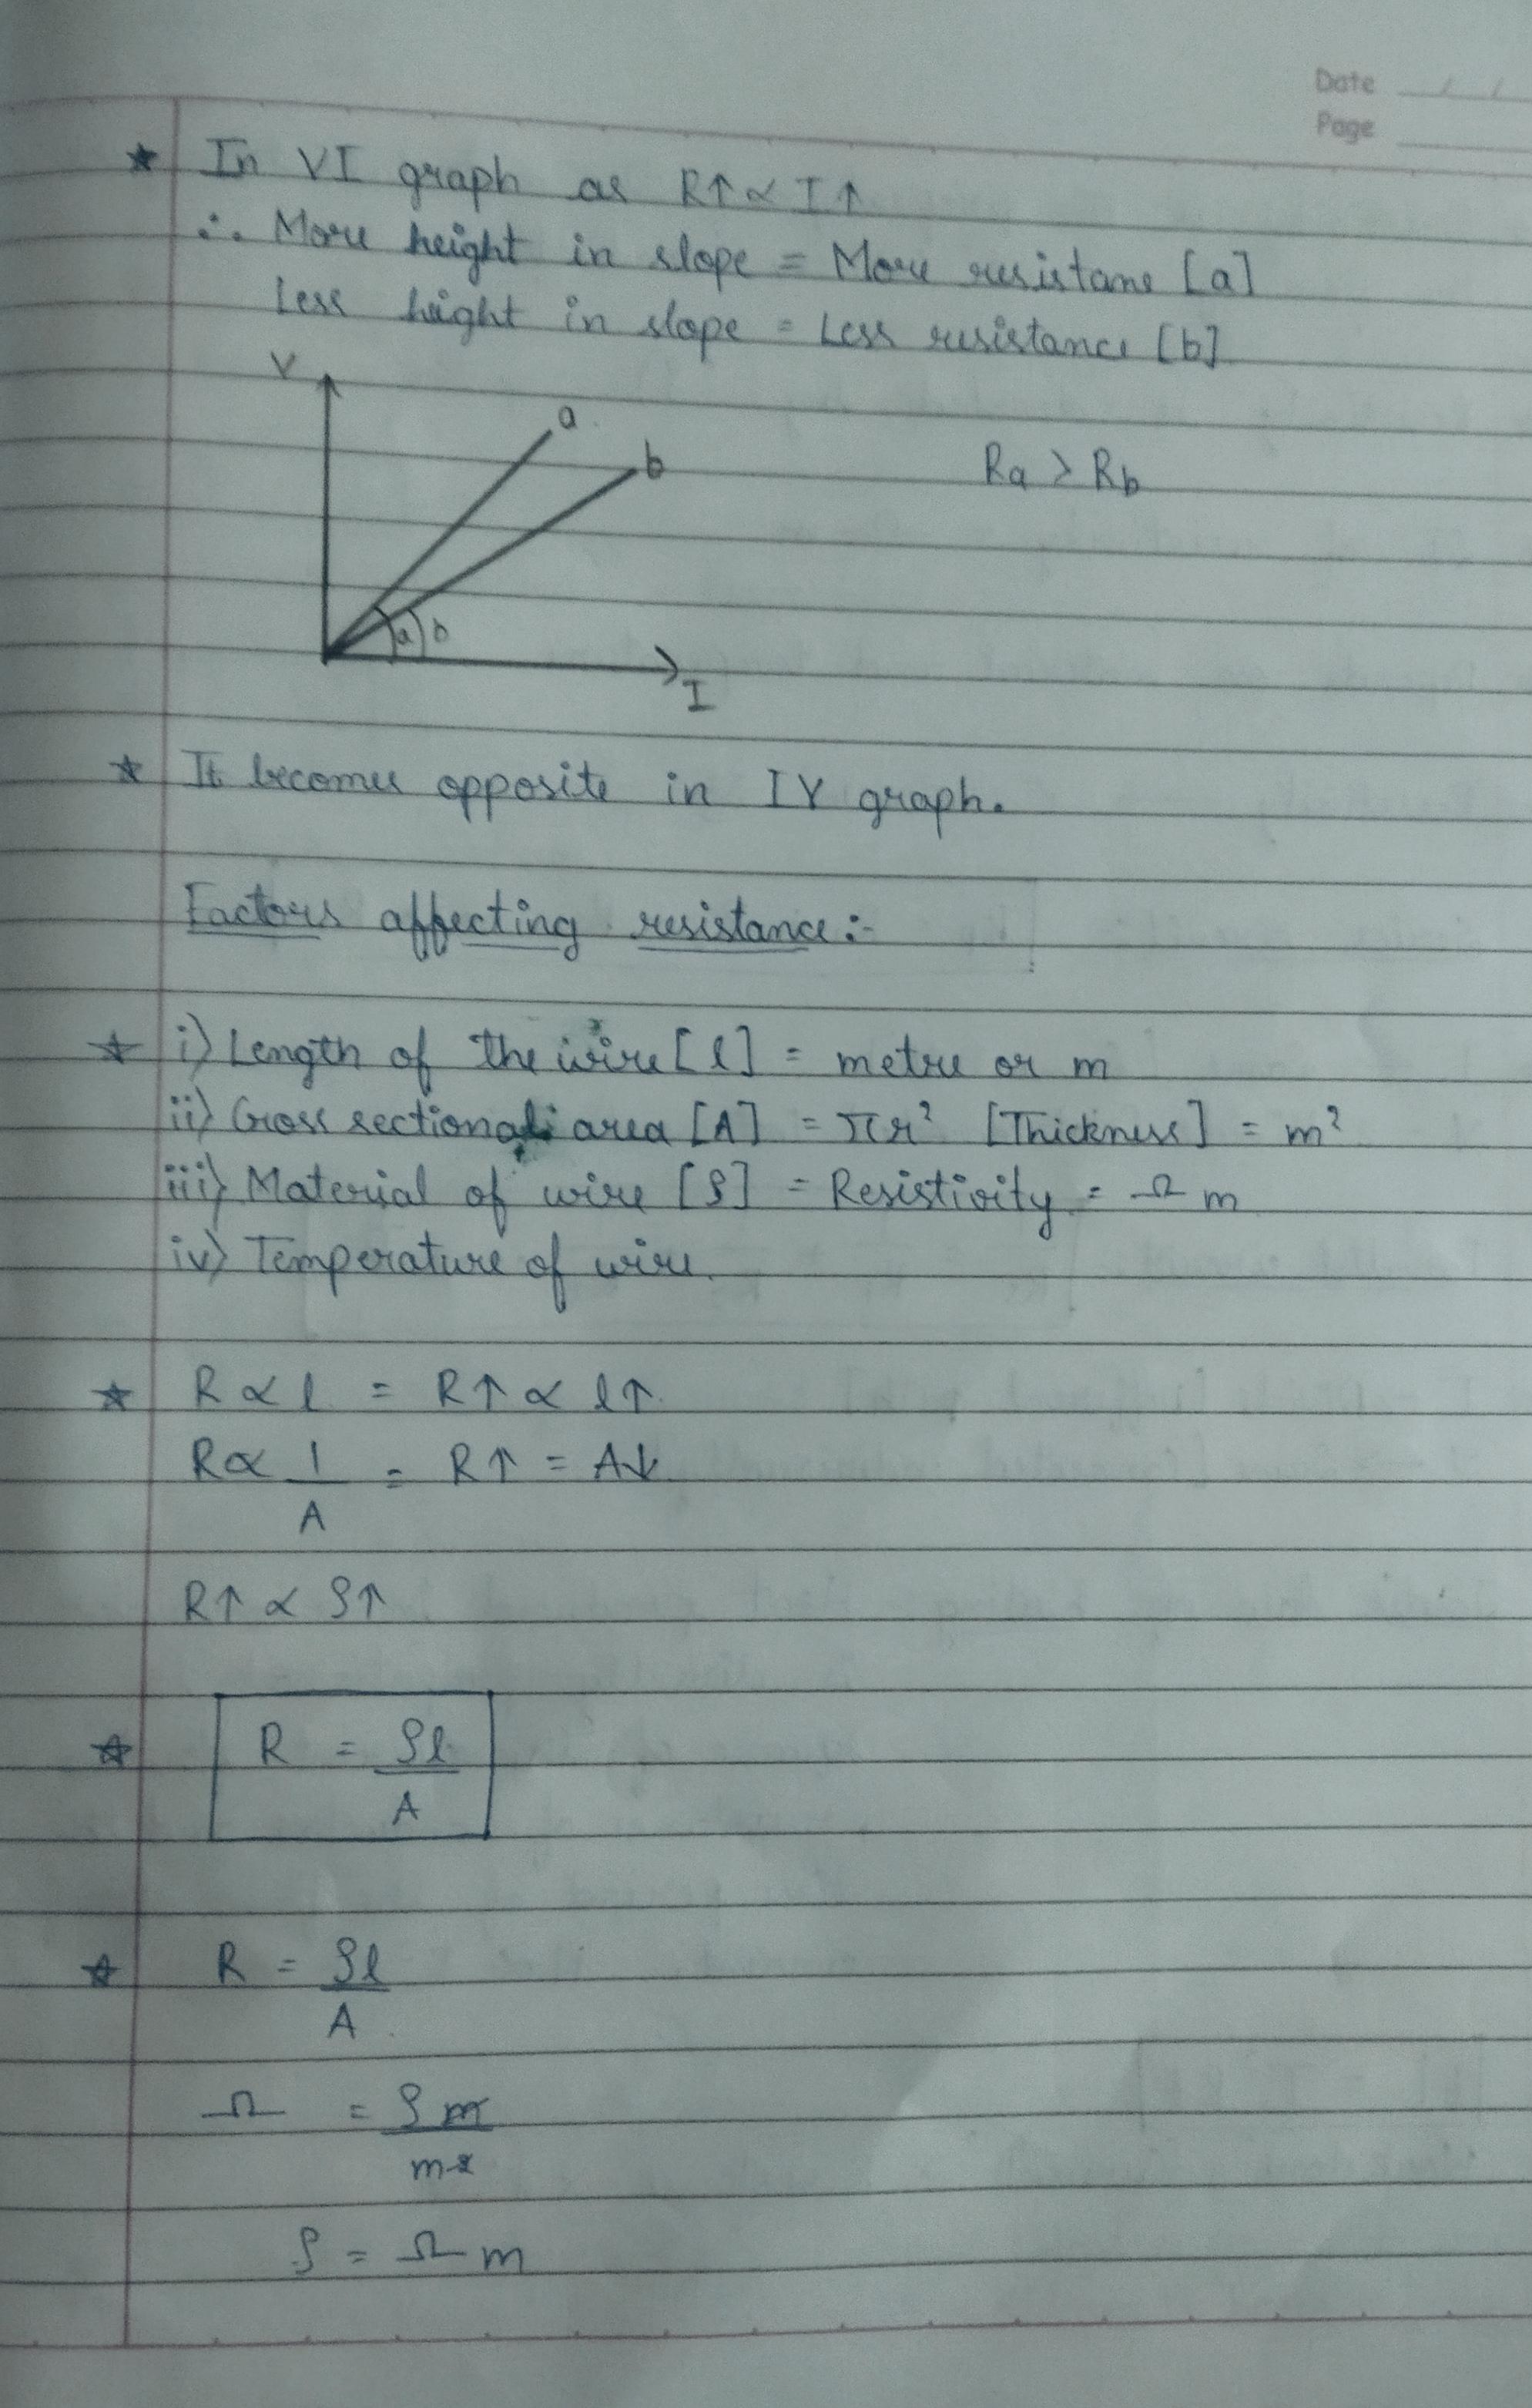 Date / /
Page
★ In VI graph as R↑ ∝ I↑
∴ More height in slope = More resistane [a]
Less height in slope = Less resistance [b]
V
a
b
Ra > Rb
a b
I
★ It becomes opposite in IV graph.
Factors affecting resistance :-
★ i) Length of the wire [l] = metre or m
ii) Cross sectional area [A] = πr² [Thickness] = m²
iii) Material of wire [ρ] = Resistivity = Ω m
iv) Temperature of wire.
★ R ∝ l = R↑ ∝ l↑
R ∝ 1 = R↑ = A↓
A
R↑ ∝ ρ↑
★ R = ρl
A
★ R = ρl
A
Ω = ρ m
m2
ρ = Ω m